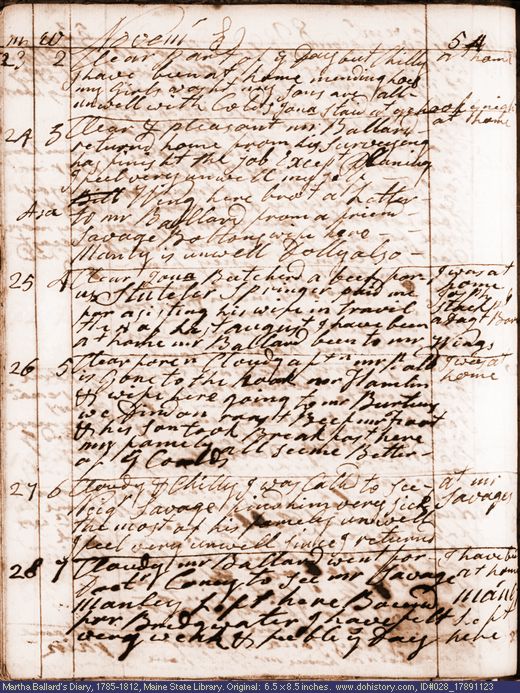 m w Novem 8 54
23 2 Clear part of y Day but Chilly at home
I have been at home mending hoes
my Girls washt my Sons are all
unwell with Colds Jona
24 3 Clear & pleasant mr Ballard at home
returnd home from his Surveying
has finisht the Job Except planing
I feel very unwell my self
Bill Wing here brot a Letter
to mr Ballard from a friend
Savage Boltons wife here
Manly is unwell Dolly also
25 4 Clear Jona Butcherd a beef for I was at
us Springer paid me home
for asisting his wife in travel
the of last august I have been
at home mr Ballard been to mr Wings
26 5 Clear fore n Cloudy aft n mr Ballard I was at
is gone to the hook mr Hamlin home
& wife here going to mr Burtuns
we Dind on roast Beef
& his son took Breakfast here
my family all seeme Better
of y Coulds
27 6 Cloudy & Chilly I was Calld to See at mr
Savage find him very sick Savages
the most of his family unwell
I feel very unwell since I returnd
28 7 Cloudy mr Ballard went for I have been
Doctr Cony to See mr Savage at home
Manley left here Bound Manly
for Bridgwater I have felt left
very weak & feeble y Day here
Martha Ballard's Diary, 1785-1812, Maine State Library. Original: 6.5 x 8.5 inches. www.dohistory.com, ID#028_17891123